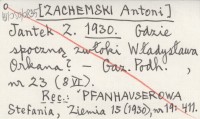 [ZACHEMSKI Antoni]
Jantek Z. 1930. Gdzie
spoczną zwłoki Władysława
Orkana? - Gaz. Podh.,
nr 23 (8 VI).
Rec.: PFANHAUSEROWA
Stefania, Ziemia 15 (1930), nr 19: 411.